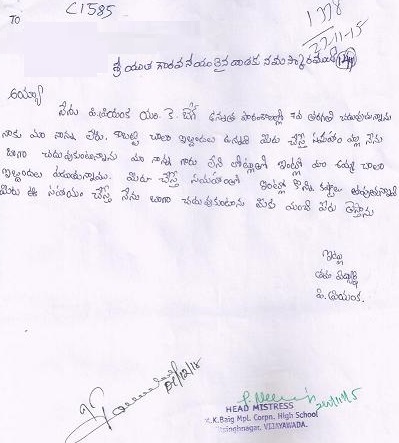 TO
C1585
1378
27-11-15
శ్రీ యుత గౌరవనీయులైన దాతకు నమస్కారములు
అయ్యా
నేను పి.ప్రియంక యం. కె. బేగ్ ఉన్నత పాఠశాలలో 7వ తరగతి చదువుతున్నాను
నాకు మా నాన్న లేరు. కాబట్టి చాలా ఇబ్బందులు ఉన్నవి మీరు చేస్తే సహాయం వల్ల నేను
బాగా చదువుకుంటున్నాను మా నాన్న గారు లేని లోట్లుతో ఇంట్లో మా అమ్మ చాలా
ఇబ్బందులు పడుతున్నాము. మీరు చేస్తే సహాయంతో ఇంట్లో కొన్ని కష్టాలు
మీరు ఈ సహాయం చేస్తే నేను బాగా చదువుకుంటాను మీకు మంచి పేరు తెస్తాను
ఇట్లు
తమ విద్యార్థి
పి. ప్రియంక.
HEAD MISTRESS
.K.Baig Mpl. Corpn. High School
singhnagar, VIJAYAWADA.